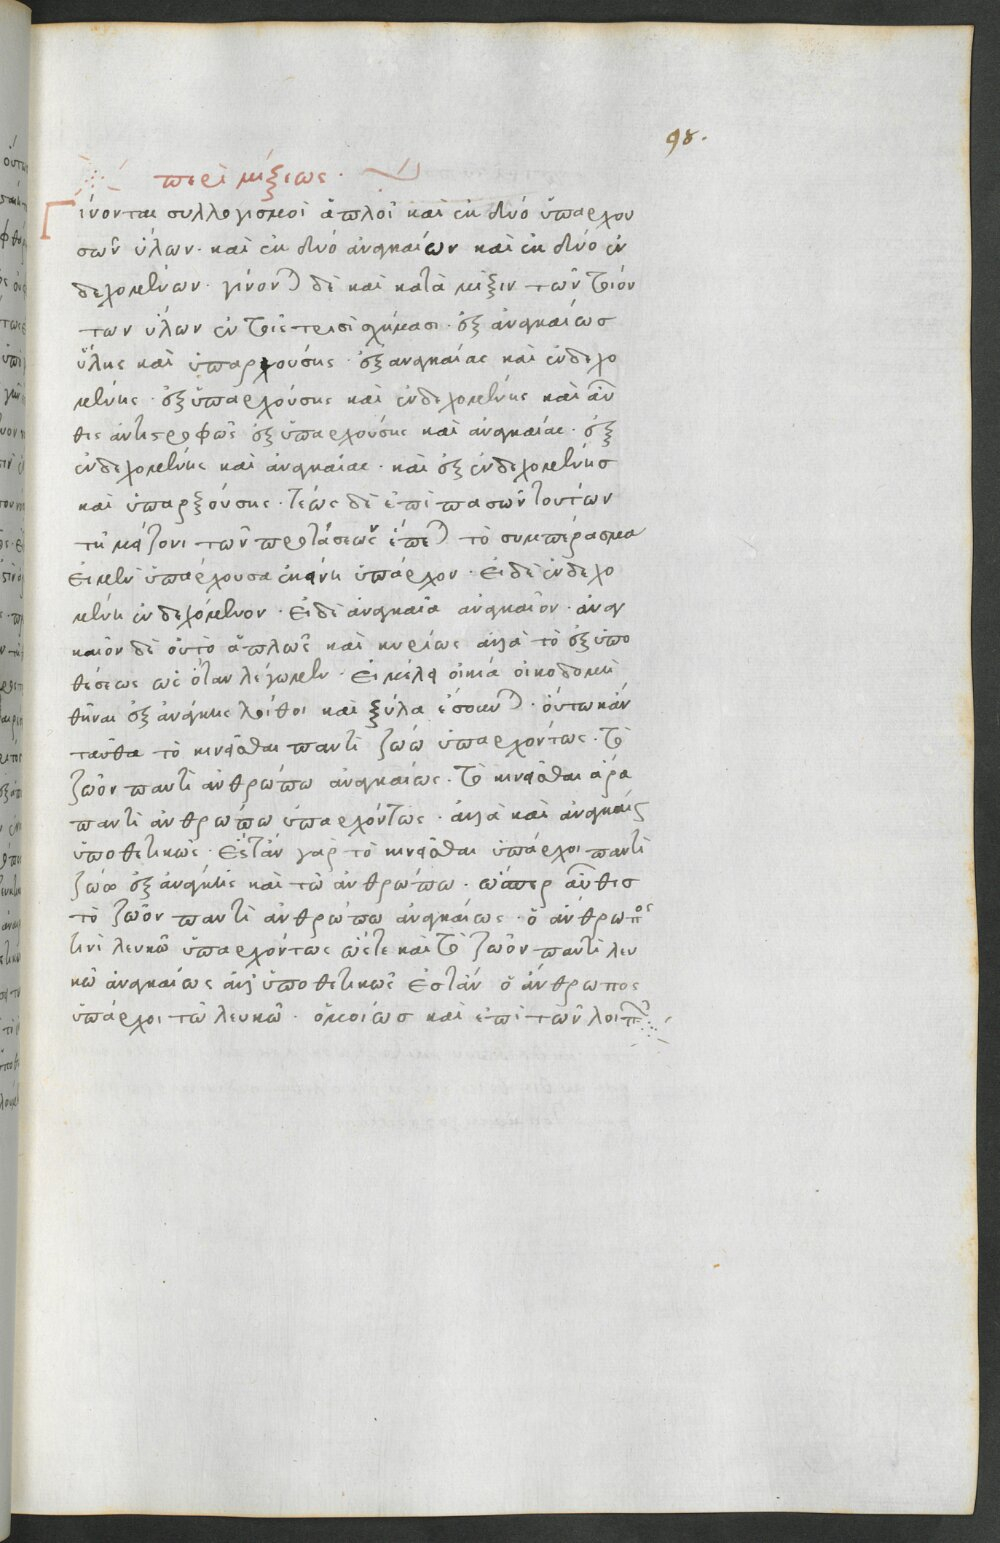 98.
περὶ μίξεως.
Γίνονται συλλογισμοὶ ἁπλοῖ καὶ ἐκ δύο ὑπαρχου
σῶν ὑλῶν. καὶ ἐκ δύο ἀναγκαίων καὶ ἐκ δύο ἐν
δεχομένων. γίνον) δὲ καὶ κατὰ μίξιν τῶν τοιού
των ὑλῶν ἐν τοῖς τρισὶ σχήμασι. ἐξ ἀναγκαίως
ὕλης καὶ ὑπαρχούσης. ἐξ αναγκαίας καὶ ἐνδεχο
μένης. ἐξ ὑπαρχούσης καὶ ἐνδεχομένης καὶ αὖ
θις ἀντιστρόφως ἐξ ὑπαρχούσης καὶ ἀναγκαίας. ἐξ
ἐνδεχομένης καὶ ἀναγκαίας. καὶ ἐξ ἐνδεχομένης
καὶ ὑπαρξούσης. τέως δὲ ἐπὶ πασῶν τούτων
τῇ μείζονι τῶν προτάσεων ἕπε) τὸ συμπέρασμα
εἰ μὲν ὑπάρχουσα ἐκείνη ὑπάρχον. εἰ δὲ ἐνδεχο
μένη ἐνδεχόμενον. εἰ δὲ ἀναγκαῖα ἀναγκαῖον. ἀναγ
καῖον δὲ οὐ τὸ ἁπλῶς καὶ κυρίως ἀλλὰ τὸ ἐξ ὑπο
θέσεως ὡς ὅταν λέγωμεν. εἰ μέλει οἰκία οἰκοδομη
θῆναι ἐξ ἀνάγκης λοίθοι καὶ ξύλα ἔσοιν). οὕτω κἀν
ταῦθα τὸ κινεῖσθαι παντὶ ζώω ὑπαρχόντως. τὸ
ζῶον παντὶ ἀνθρώπω ἀναγκαίως. τὸ κινεῖσθαι ἄρα
παντὶ ἀνθρώπω ὑπαρχόντως. ἀλλὰ καὶ ἀναγκαίς
ὑποθετικῶς. ἔστ' ἂν γὰρ τὸ κινεῖσθαι ὑπάρχοι παντὶ
ζώω ἐξ ἀνάγκης καὶ τῶ ἀνθρώπω. ὥσπερ αὖθις
τὸ ζῶον παντὶ ἀνθρώπω ἀναγκαίως. ὁ ἄνθρωπος
τινὶ λευκῶ ὑπαρχόντως ὥστε καὶ τὸ ζῶον παντὶ λευ
κῶ ἀναγκαίως ἀλλ' ὑποθετικῶς ἔστ' ἂν ὁ ἄνθρωπος
ὑπάρχοι τῶ λευκῶ. ὁμοίως καὶ ἐπὶ τῶν λοιπῶν